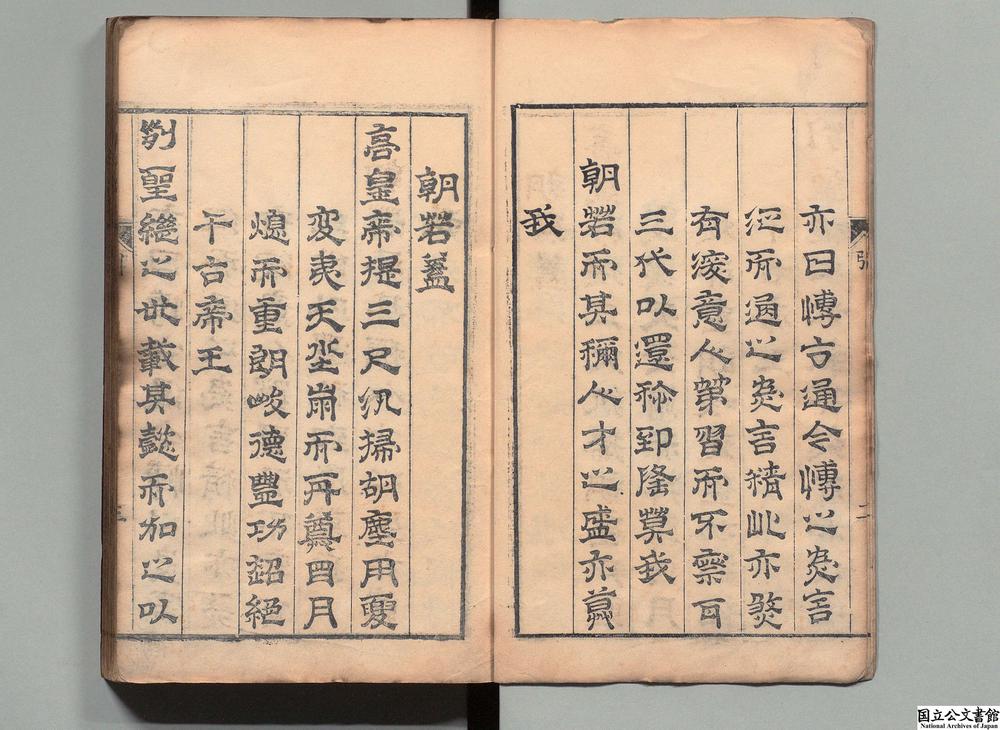 亦曰愽古通今愽之爲言
泛而通之爲言精此亦煞
有深意人第習而不察耳
三代以還稱郅隆莫我
朝若而其稱人才之盛亦莫
我
朝若蓋
高皇帝提三尺仞掃胡塵用夏
変夷天坔崩而再奠日月
熄而重朗峻德豐功超絕
千古帝王
列聖繼之世載其懿而加之以
引
二
国立公文書館
National Archives of Japan